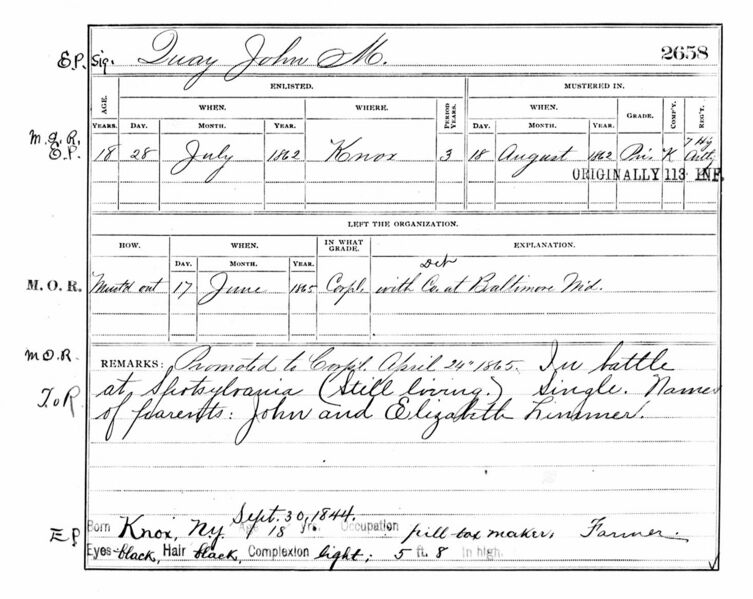 E.P. Sig. Quay John M. 2658
ENLISTED. MUSTERED IN.
AGE. WHEN. WHERE. PERIOD YEARS. WHEN. GRADE. COMP'Y. REG'T.
YEARS. DAY. MONTH. YEAR. DAY. MONTH. YEAR.
M.G.R.
E.P. 18 28 July 1862 Knox 3 18 August 1862 Pri. K 7 Hy Artly
ORIGINALLY 113 INF.
LEFT THE ORGANIZATION.
HOW. WHEN. IN WHAT GRADE. EXPLANATION.
DAY. MONTH. YEAR.
Det
M.O.R. Must'd out 17 June 1865 Corpl with Co. at Baltimore Md.
M.O.R. REMARKS: Promoted to Corpl. April 24" 1865. In battle
T.o.R at Spotsylvania (Still living.) Single. Names
of parents: John and Elizabeth Limmer.
Sept. 30, 1844.
E P Born Knox, Ny Age 18 yrs. Occupation pill-box maker. Farmer.
Eyes black, Hair black, Complexion light; 5 ft. 8 in high.